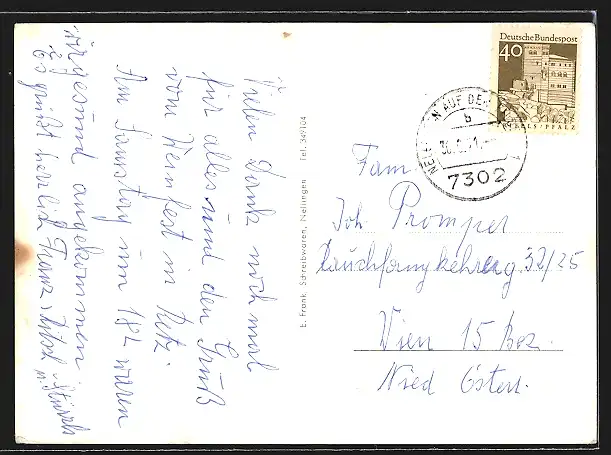 Vielen Dank noch mal
für alles und den Gruß
vom Weinfest in Retz.
Am Samstag um 18h waren
wir gesund angekommen
Es grüßt herzlich Franz,
E. Frank, Schreibwaren, Nellingen Tel. 349104
Deutsche Bundespost
40
TRIFELS/PFALZ
NELLINGEN AUF DEN
b
7302
Fam
Joh Promper
Rauchfangkehrerg 32/25
Wien 15 Bez.
Nied Österr.